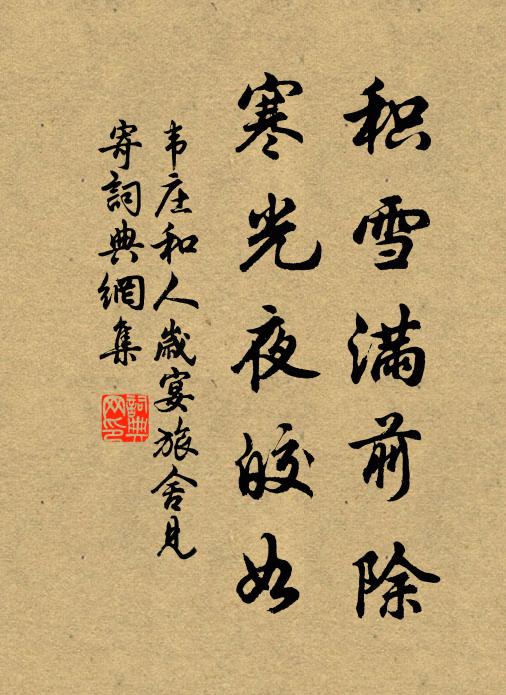 积雪满前除
寒光夜皎如
韦庄和人岁宴旅舍见
寄詞典網集
詞典
网印